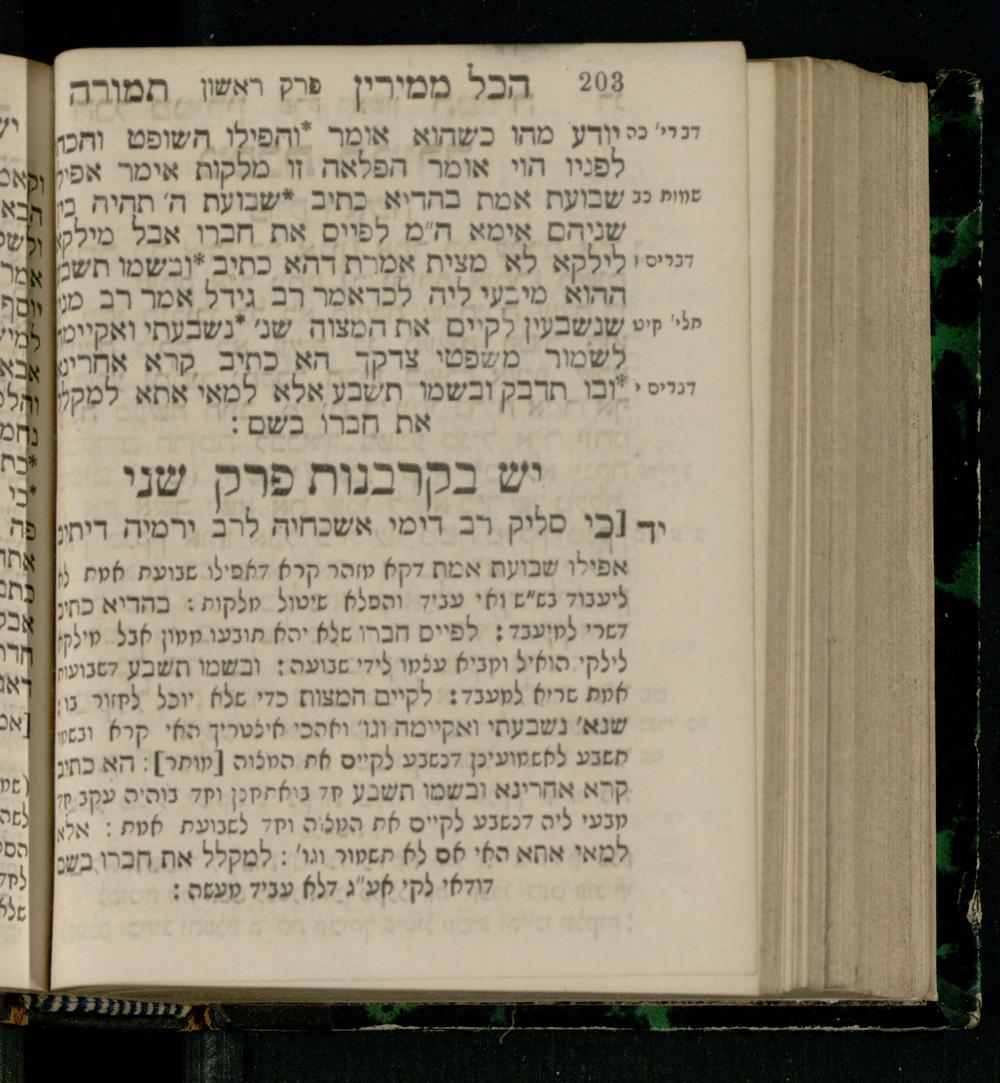 203 הכל ממירין פרק ראשון תמורה
דברי' כח יודע מהו כשהוא אומר *והפילו השופט והכהו
לפניו הוי אומר הפלאה זו מלקות אימר אפילו
שמות כב שבועת אמת בהדיא כתיב *שבועת ה' תהיה בין
שניהם אימא ה"מ לפיים את חברו אבל מילקא
דברים ו לילקא לא מצית אמרת דהא כתיב *ובשמו תשבע
ההוא מיבעי ליה לכדאמר רב גידל אמר רב מני
תלי' קיט שנשבעין לקיים את המצוה שנ' *נשבעתי ואקיימה
לשמור משפטי צדקך הא כתיב קרא אחרינא
דברים י *ובו תדבק ובשמו תשבע אלא למאי אתא למקלל
את חברו בשם :
יש בקרבנות פרק שני
יד [כי סליק רב דימי אשכחיה לרב ירמיה דיתיב
אפילו שבועת אמת דקא מזהר קרא דאפילו שבועת אמת לא
ליעבוד בש"ש ואי עביד והפלא שיטול מלקות : בהדיא כתיב
דשרי למיעבד : לפיים חברו שלא יהא תובעו ממון אבל מילקא
לילקי הואיל ומביא עצמו לידי שבועה : ובשמו תשבע דשבועות
אמת שריא למעבד : לקיים המצות כדי שלא יוכל לחזור בו :
שנא' נשבעתי ואקיימה וגו' ואהכי איצטריך האי קרא ובשמו
תשבע לאשמועינן דנשבע לקיים את המצוה [מותר] : הא כתיב
קרא אחרינא ובשמו תשבע חד בואתחנן וחד בוהיה עקב חד
מבעי ליה דנשבע לקיים את המצוה וחד לשבועת אמת : אלא
למאי אתא האי אם לא תשמור וגו' : למקלל את חברו בשם
דודאי לקי אע"ג דלא עביד מעשה :